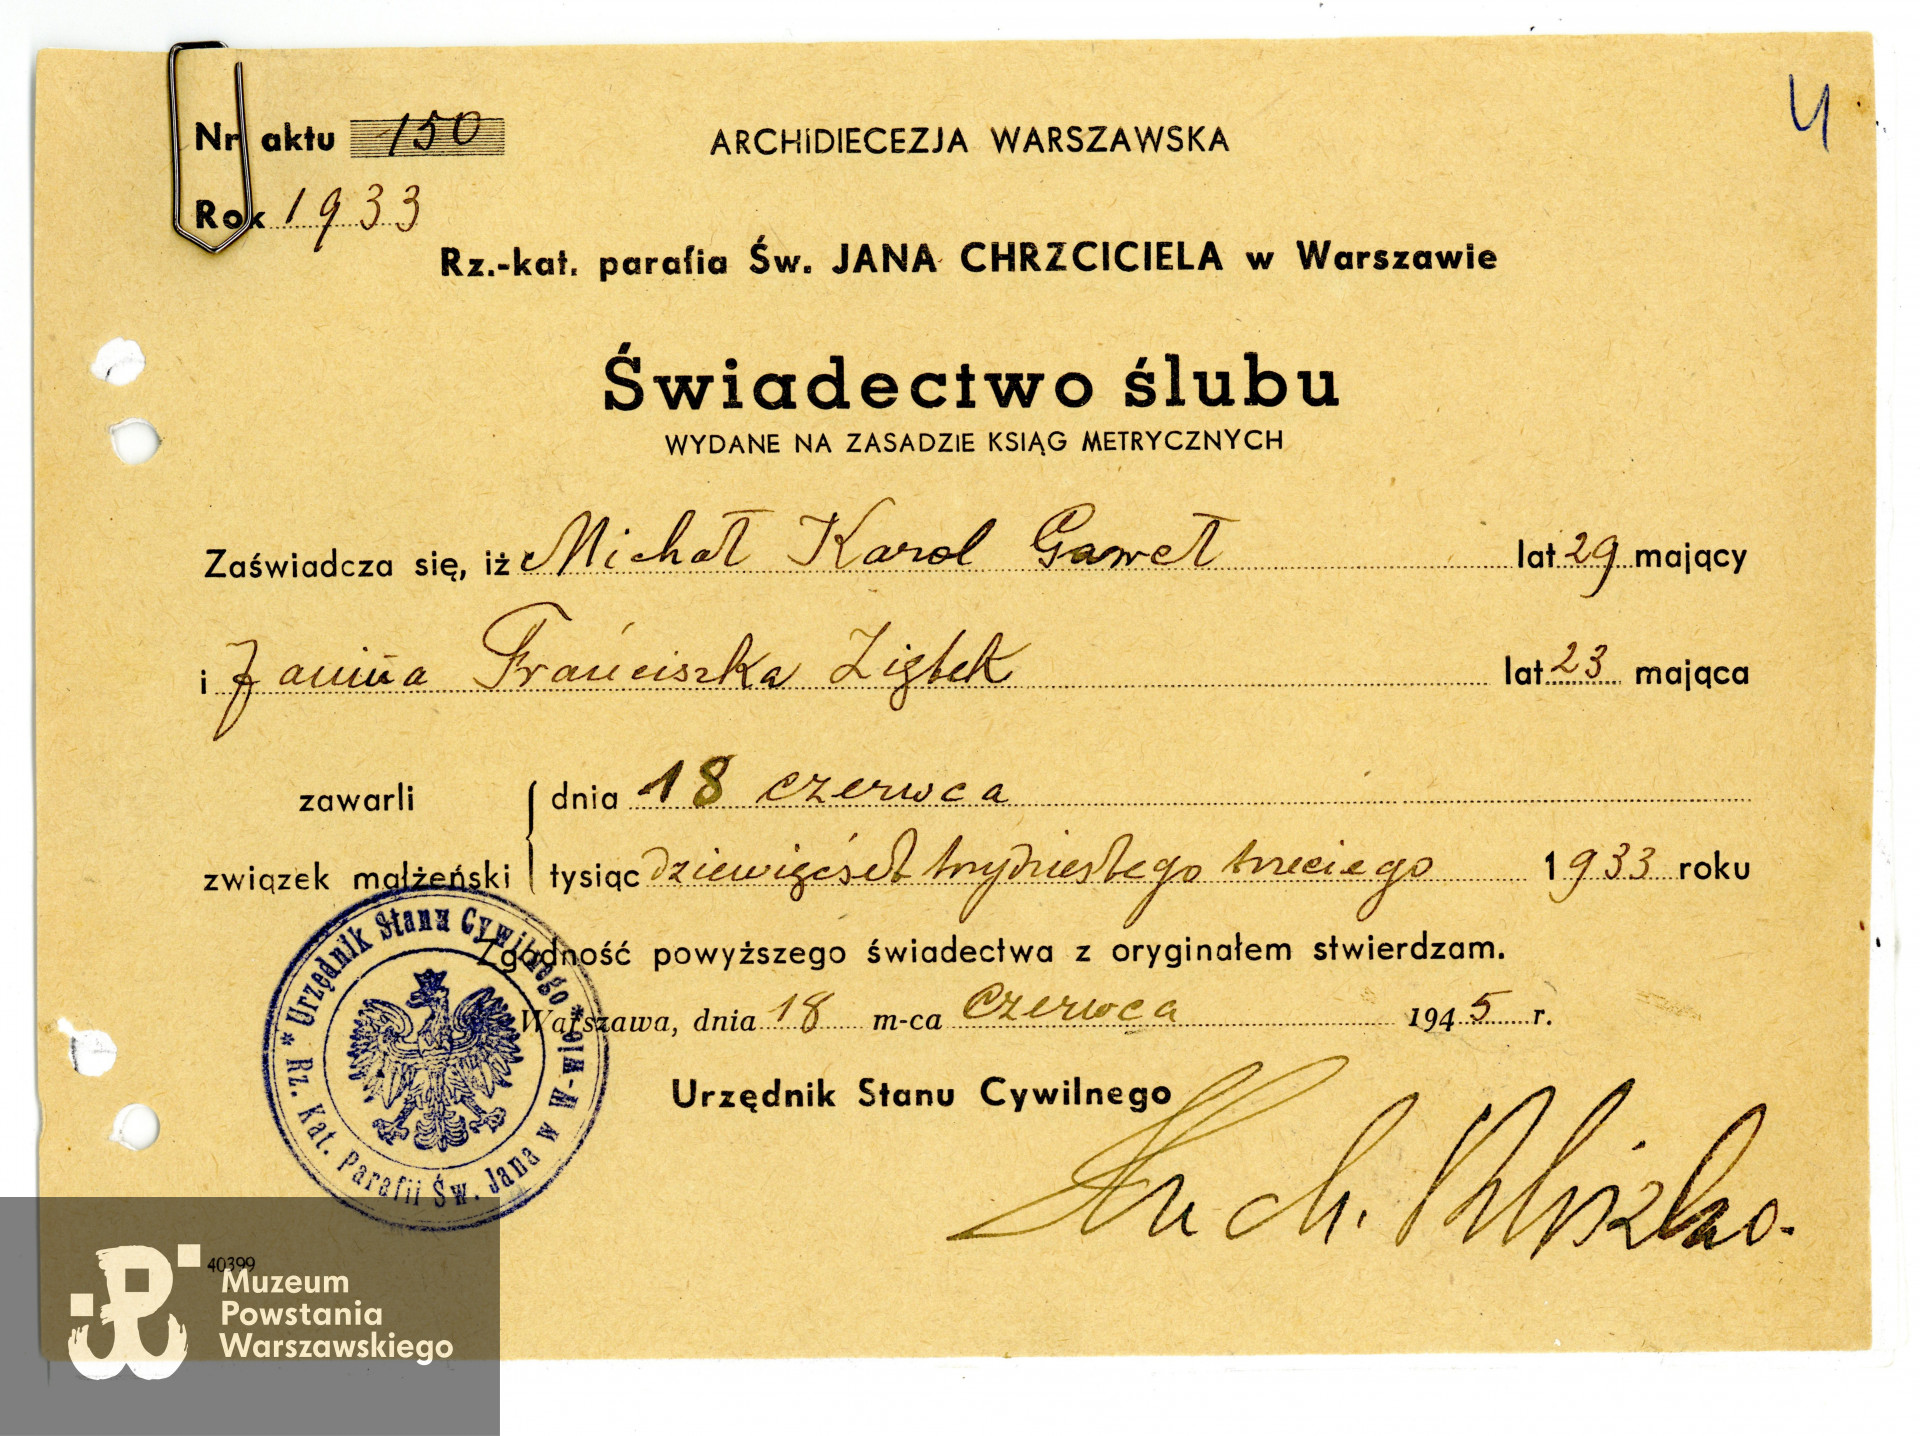 4
Nr aktu 150
ARCHIDIECEZJA WARSZAWSKA
Rok 1933
Rz.-kat. parafia Św. JANA CHRZCICIELA w Warszawie
Świadectwo ślubu
WYDANE NA ZASADZIE KSIĄG METRYCZNYCH
Zaświadcza się, iż Michał Karol Gaweł lat 29 mający
i Janina Franciszka Ziębek lat 23 mająca
zawarli dnia 18 czerwca
związek małżeński tysiąc dziewięćset trzydziestego trzeciego 1933 roku
Zgodność powyższego świadectwa z oryginałem stwierdzam.
Warszawa, dnia 18 m-ca Czerwca 1945 r.
Urzędnik Stanu Cywilnego
* Urzędnik Stanu Cywilnego *
Rz. Kat. Parafii Św. Jana w W-wie
40399
Muzeum
Powstania
Warszawskiego